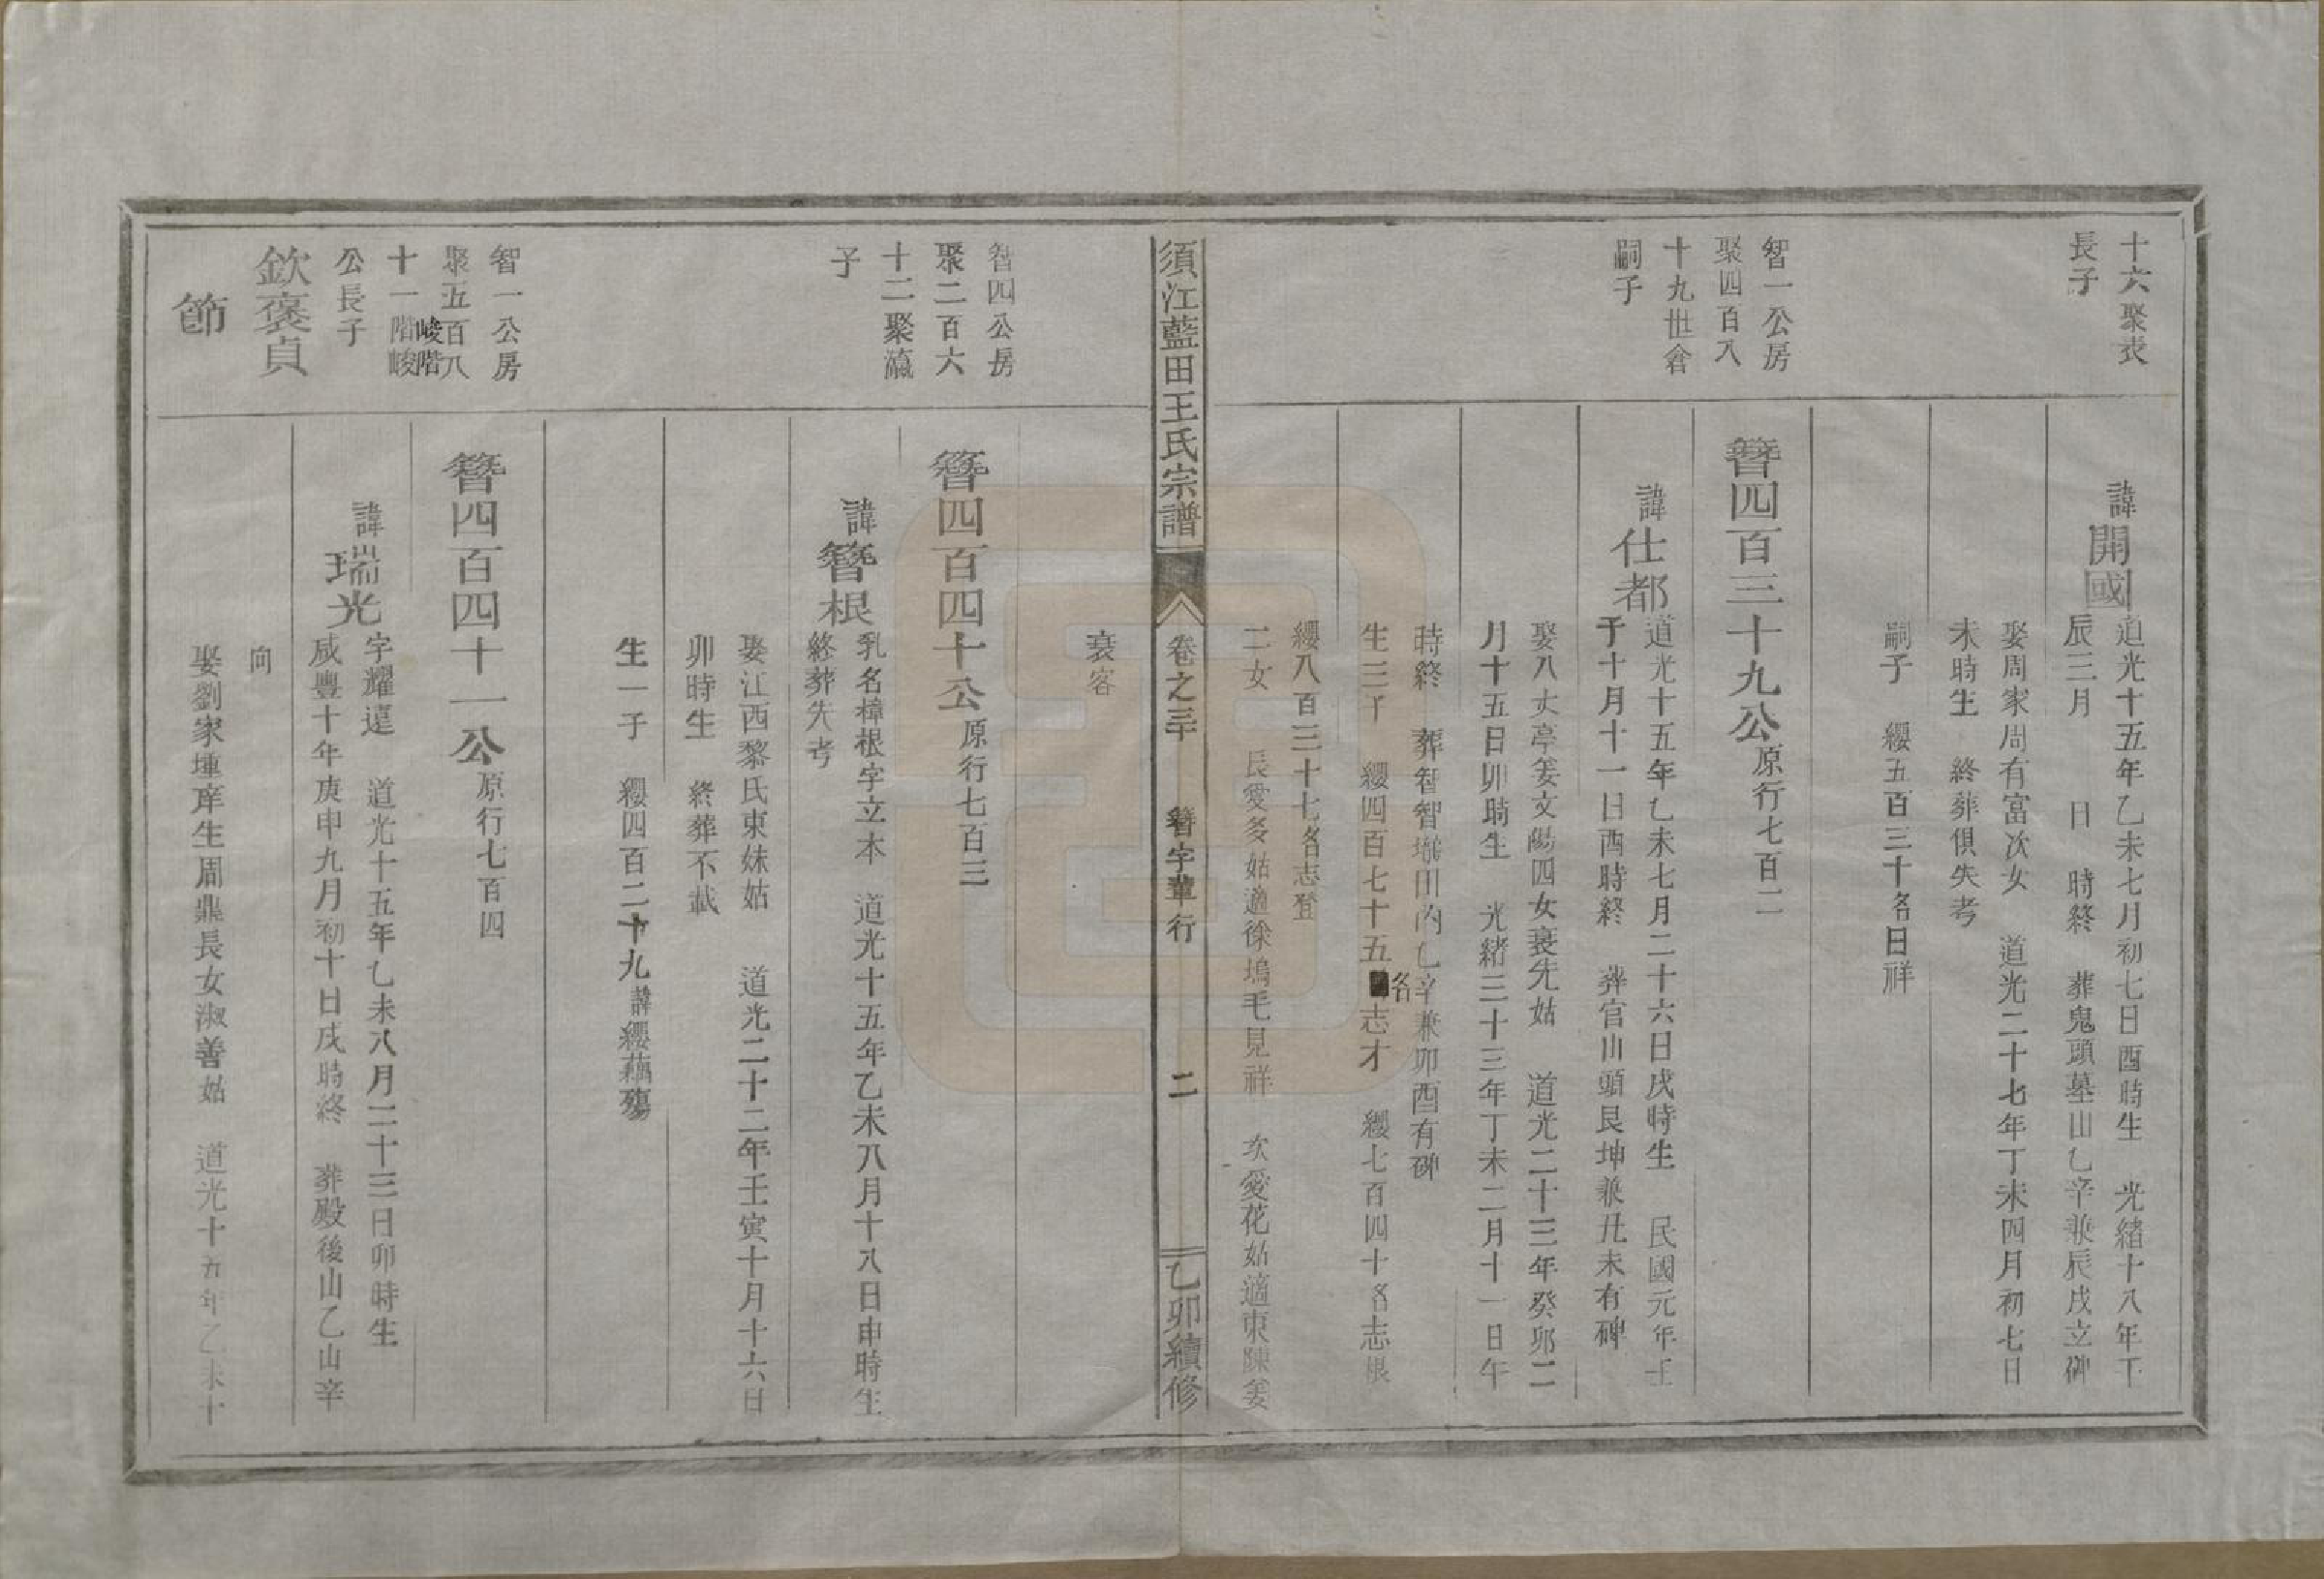 十六聚表
長子
諱開國
道光十五年乙未七月初七日酉時生　光緒十八年壬
辰三月　　日　時終　葬鬼頭墓山乙辛兼辰戌立碑
娶周家周有富次女　道光二十七年丁未四月初七日
未時生　終葬俱失考
嗣子　纓五百三十名日祥
智一公房
聚四百八
十九世倉
嗣子
簪四百三十九公原行七百二
諱仕都
道光十五年乙未七月二十六日戌時生　民國元年壬
子十月十一日酉時終　葬官山頭艮坤兼丑未有碑
娶八丈亭姜文陽四女衰先姑　道光二十三年癸卯二
月十五日卯時生　光緒三十三年丁未二月十一日午
時終　葬智智壠田內乙辛兼卯酉有碑
生三子　纓四百七十五名志才　纓七百四十名志根
纓八百三十七名志登
二女　長愛多姑適徐塢毛見祥　次愛花姑適東陳姜
衰容
須江藍田王氏宗譜
卷之三十　簪字輩行　二　乙卯續修
智四公房
聚二百六
十二聚瀛
子
簪四百四十公原行七百三
諱簪根
乳名樟根字立本　道光十五年乙未八月十八日申時生
終葬失考
娶江西黎氏東妹姑　道光二十二年壬寅十月十六日
卯時生　終葬不載
生一子　纓四百二十九諱纓藕殤
智一公房
聚五百八
十一階峻
峻階
公長子
簪四百四十一公原行七百四
諱瑞光
字耀遠　道光十五年乙未八月二十三日卯時生
咸豐十年庚申九月初十日戌時終　葬殿後山乙山辛
向
欽褒貞
節
娶劉家堙庠生周鼎長女淑善姑　道光十五年乙未十